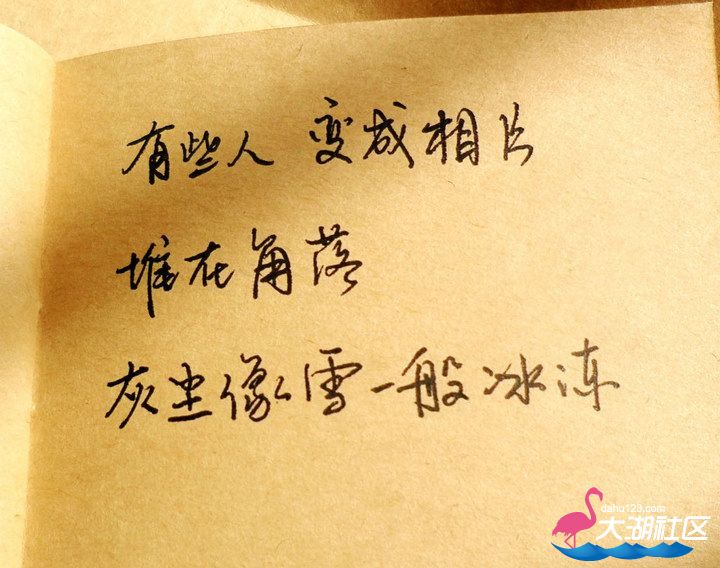 有些人 变成相片
堆在角落
灰尘像雪一般冰冻
dahu123.com
大湖社区